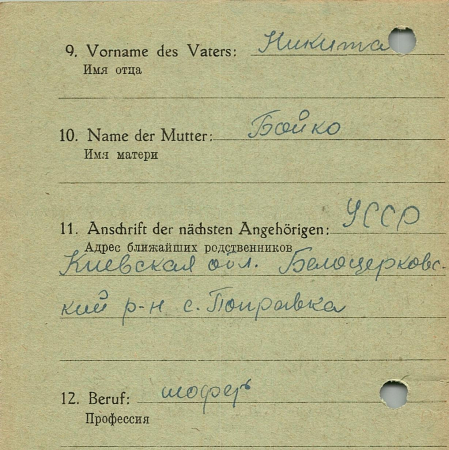 9. Vorname des Vaters: Никита
Имя отца
10. Name der Mutter: Бойко
Имя матери
11. Anschrift der nächsten Angehörigen: УССР
Адрес ближайших родственников
Киевская обл. Белоцерковс-
кий р-н с. Поправка
12. Beruf: шофер
Профессия